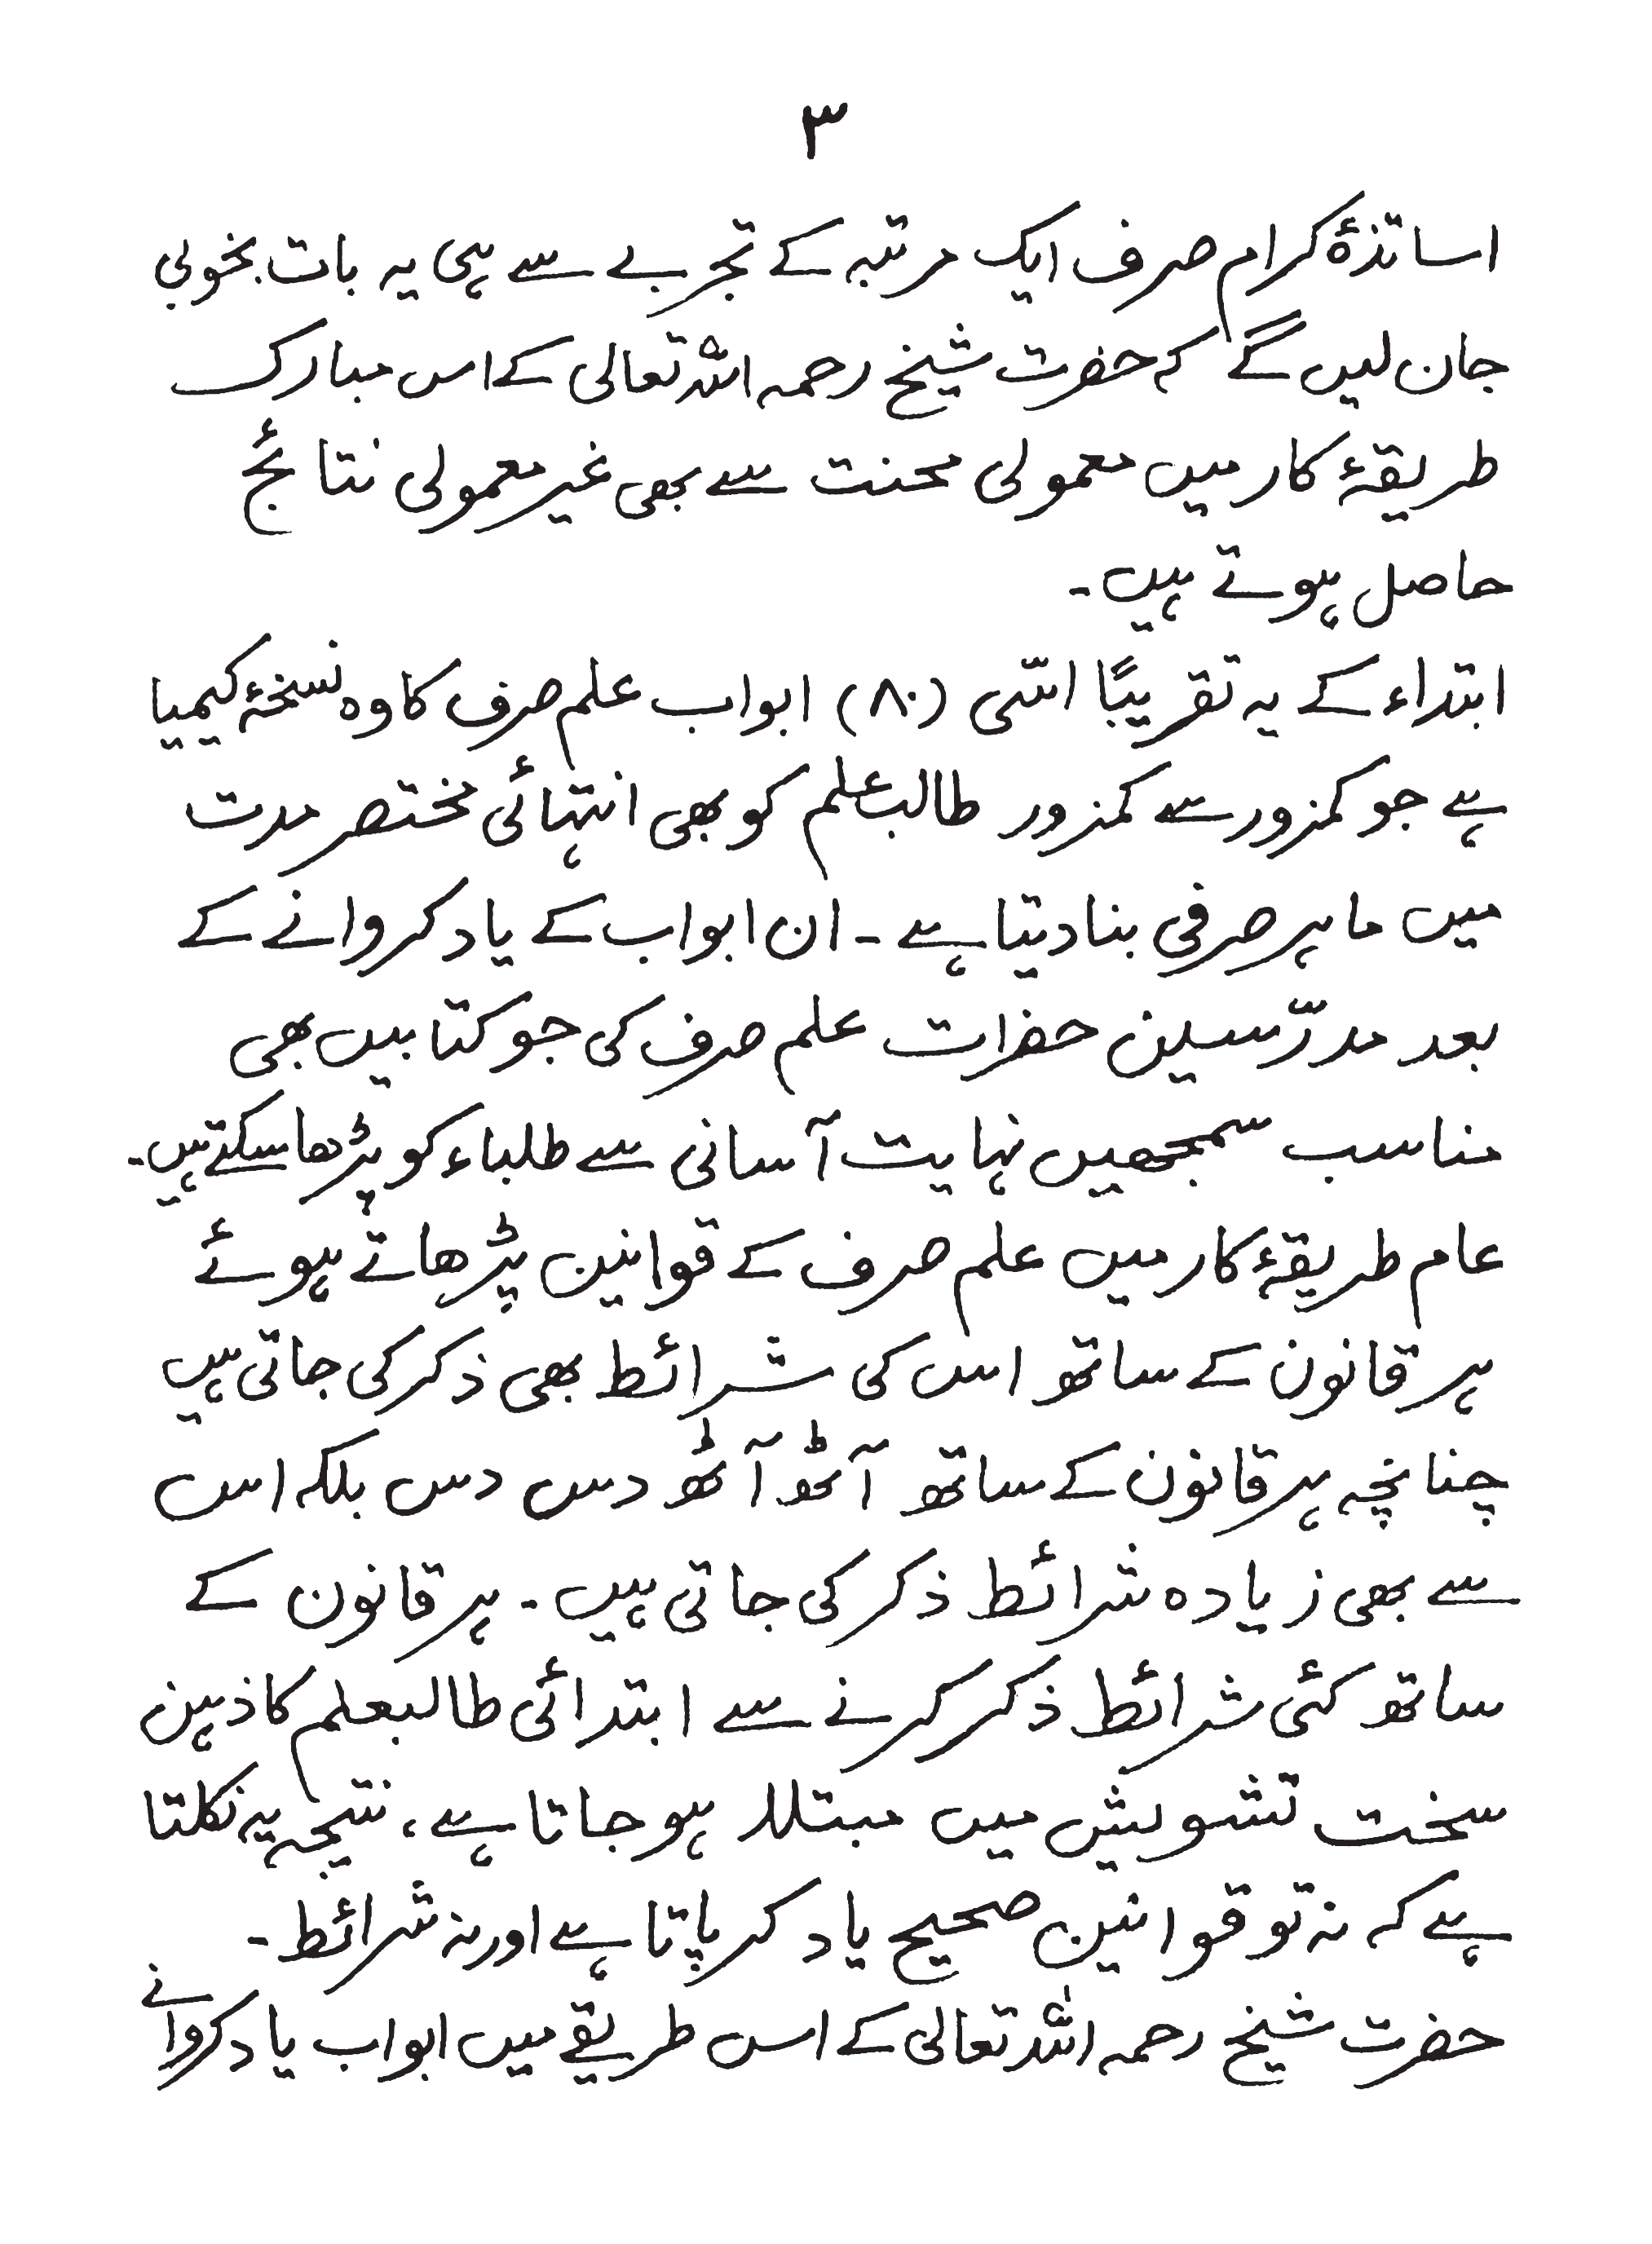 ۳
اساتذۂ کرام صرف ایک مرتبہ کے تجربے سے ہی یہ بات بخوبی
جان لیں گے کہ حضرت شیخ رحمہ اللہ تعالی کے اس مبارک
طریقۂ کار میں معمولی محنت سے بھی غیر معمولی نتائج
حاصل ہوتے ہیں۔
ابتداء کے یہ تقریبًا اسّی (۸۰) ابواب علم صرف کا وہ نسخۂ کیمیا
ہے جو کمزور سے کمزور طالب علم کو بھی انتہائی مختصر مدت
میں ماہر صرفی بنا دیتا ہے ۔ ان ابواب کے یاد کروانے کے
بعد مدرّسین حضرات علم صرف کی جو کتابیں بھی
مناسب سمجھیں نہایت آسانی سے طلباء کو پڑھا سکتے ہیں۔
عام طریقۂ کار میں علم صرف کے قوانین پڑھاتے ہوئے
ہر قانون کے ساتھ اس کی شرائط بھی ذکر کی جاتی ہیں
چنانچہ ہر قانون کے ساتھ آٹھ آٹھ دس دس بلکہ اس
سے بھی زیادہ شرائط ذکر کی جاتی ہیں ۔ ہر قانون کے
ساتھ کئی شرائط ذکر کرنے سے ابتدائی طالبعلم کا ذہن
سخت تشویش میں مبتلا ہو جاتا ہے ، نتیجہ یہ نکلتا
ہے کہ نہ تو قوانین صحیح یاد کر پاتا ہے اور نہ شرائط ۔
حضرت شیخ رحمہ اللہ تعالی کے اس طریقے میں ابواب یاد کروانے